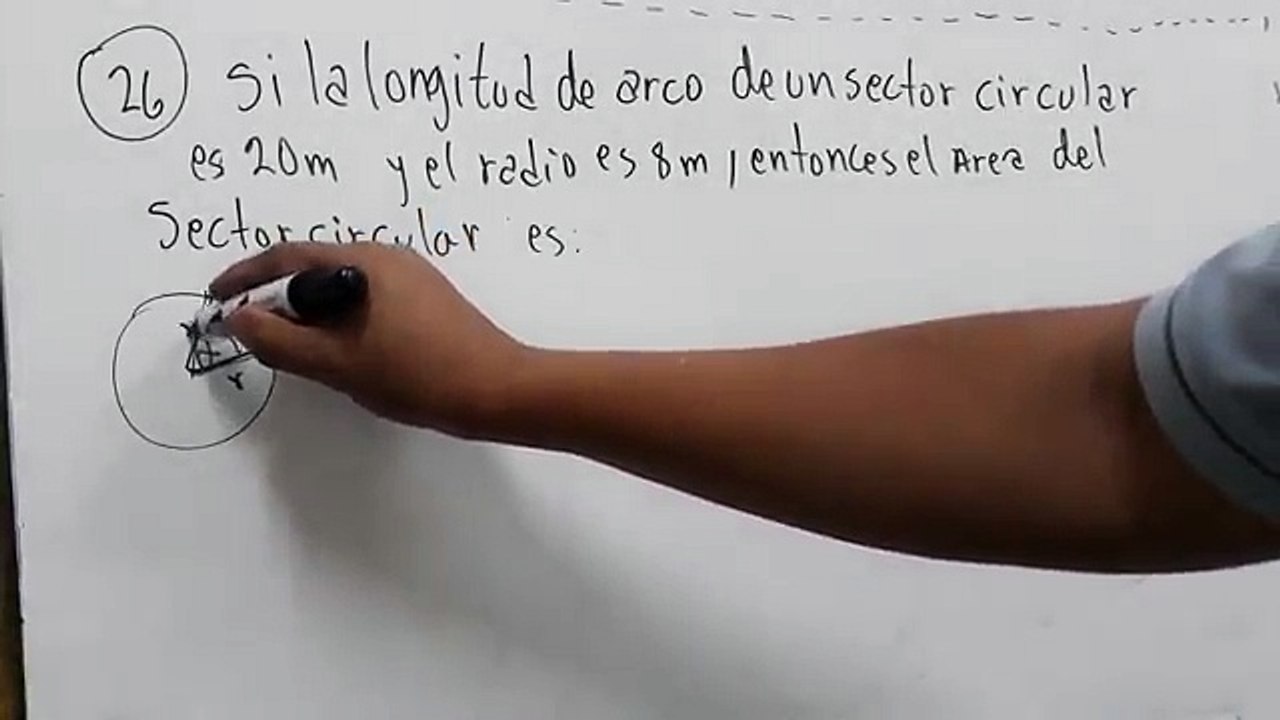 26 Si la longitud de arco de un sector circular
es 20m y el radio es 8m, entonces el Area del
Sector circular es:
r